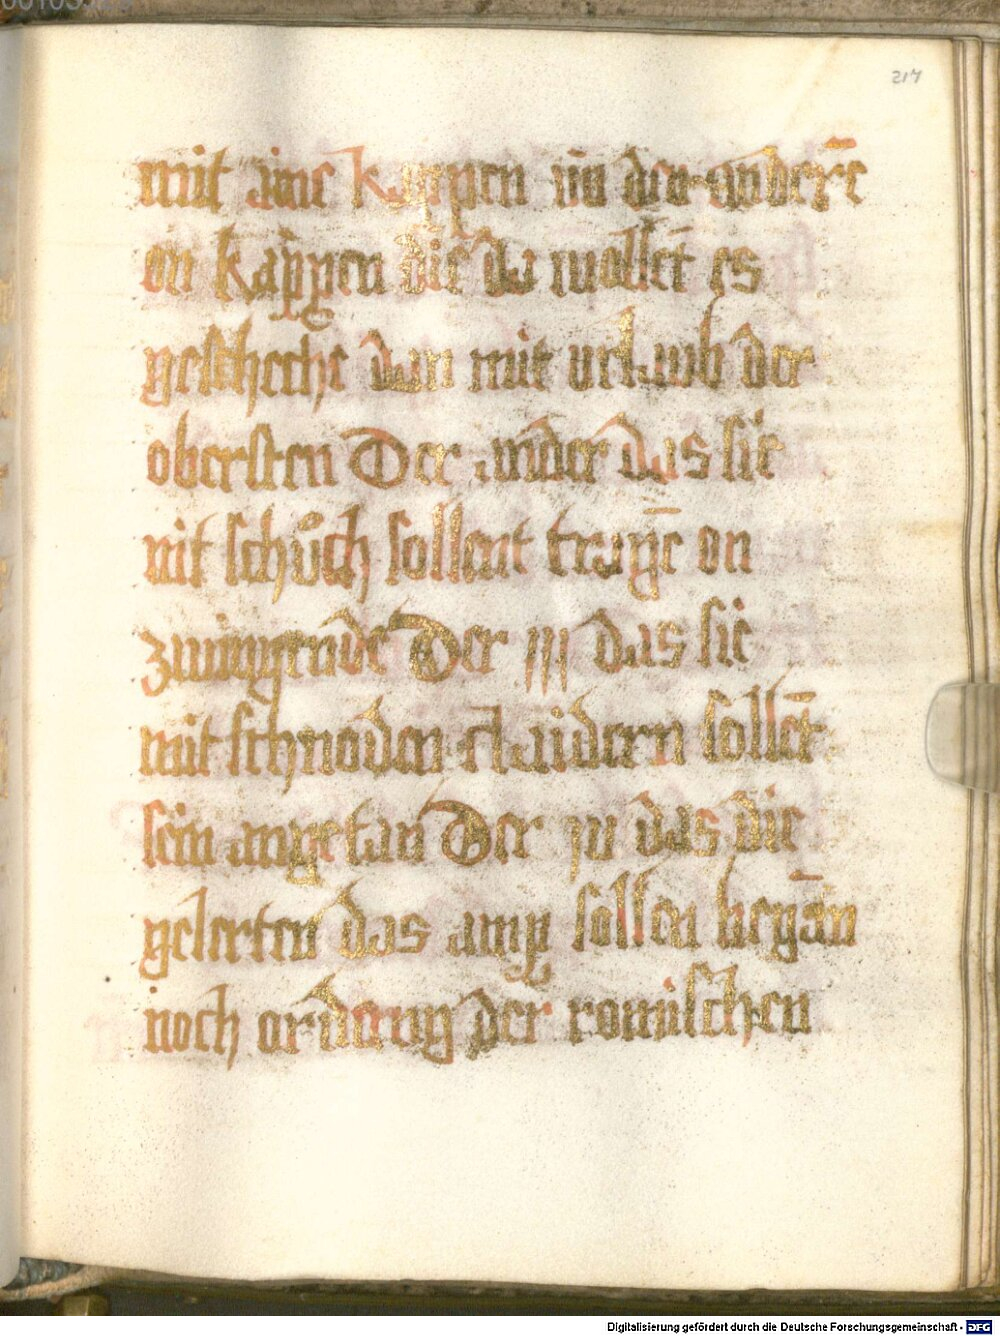 217
mit aine kappen uñ den anderē
on kappen die da wollēt es
gescheche dan mit urlaub der
obersten Der ander das sie
nit schůch sollent tragē on
zwingende Der III das sie
mit schnoden claidern sollēt
sein angetan Der IV das die
gelerten das amp sollen begān
noch ordnung der romischen
Digitalisierung gefördert durch die Deutsche Forschungsgemeinschaft - DFG